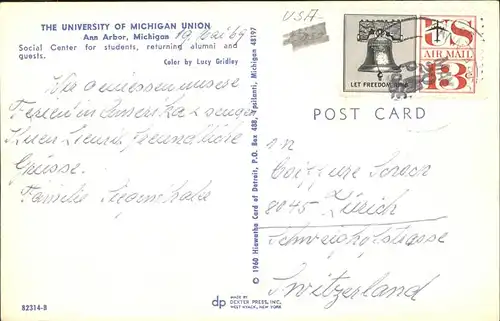 THE UNIVERSITY OF MICHIGAN UNION
Ann Arbor, Michigan 19 Mai 69
Social Center for students, returning alumni and
guests.
Color by Lucy Gridley
Wir geniessen unsere
Ferien in Amerika
Ihnen freundliche
Grüsse.
Familie
82314-B
© 1960 Hiawatha Card of Detroit, P.O. Box 488, Ypsilanti, Michigan 48197
dp
MADE BY
DEXTER PRESS, INC.
WEST NYACK, NEW YORK
USA
LET FREEDOM RING
US
AIR MAIL
13c
POST CARD
An
Coiffure
8045 Zürich
Schweighofstrasse
Switzerland